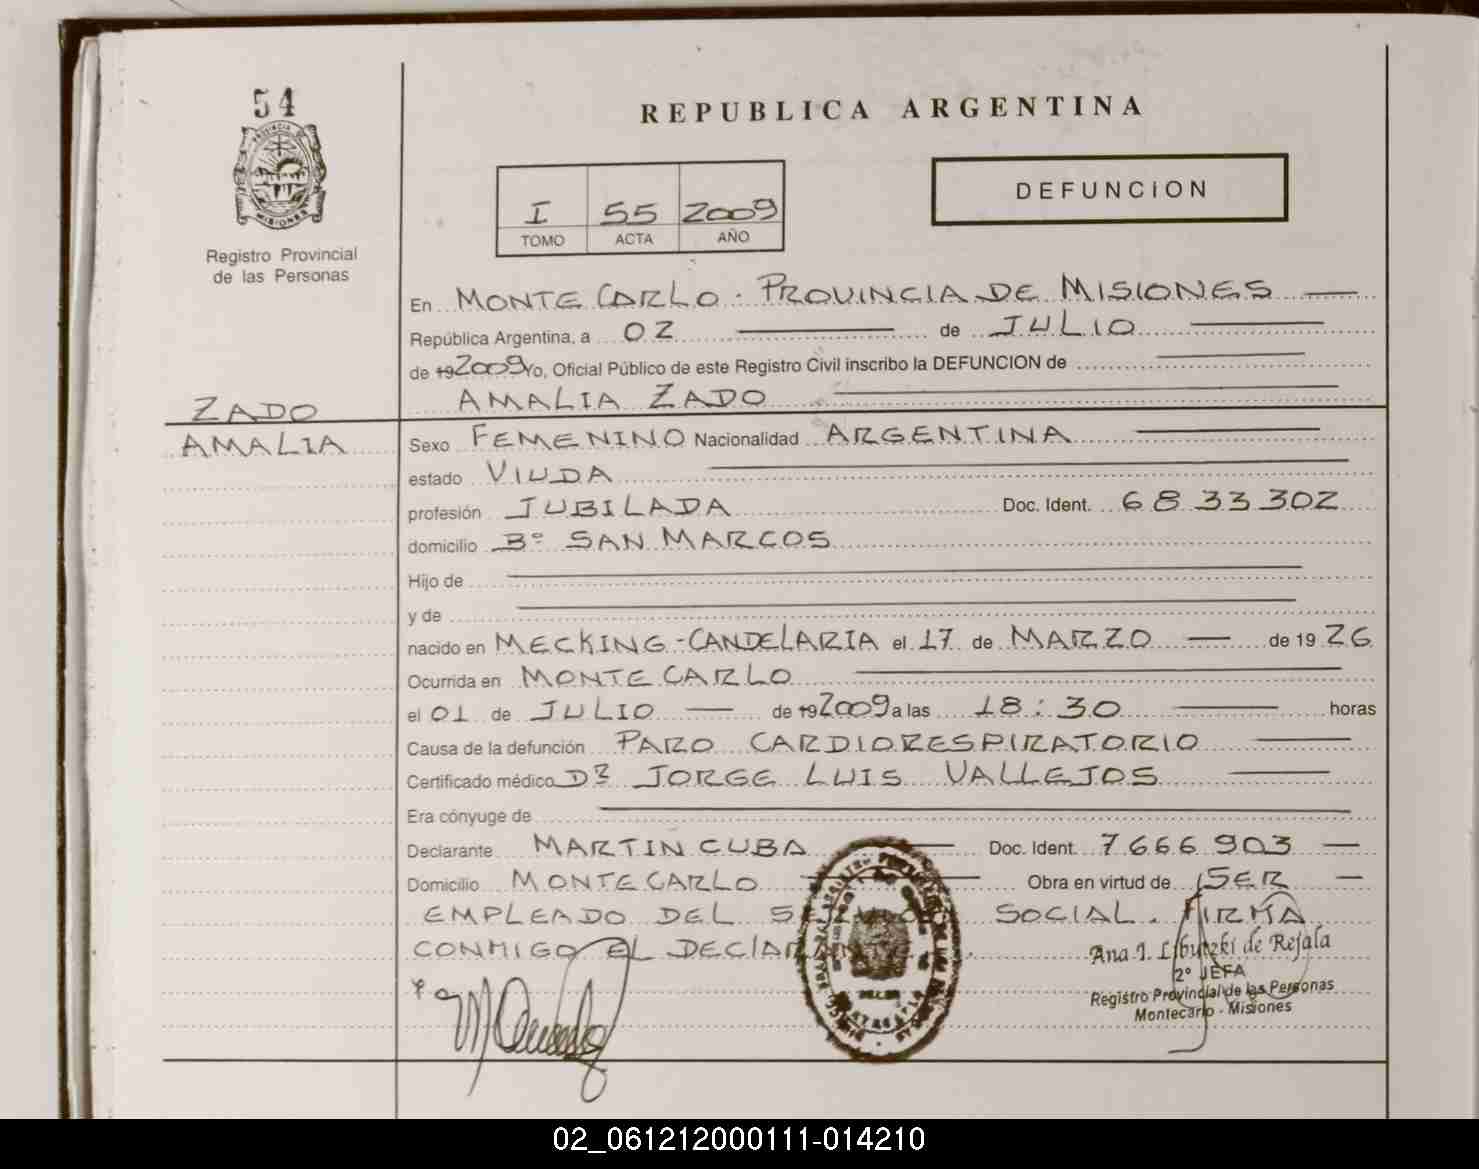 54
PROVINCIA DE
MISIONES
Registro Provincial
de las Personas
REPUBLICA ARGENTINA
I 55 2009
TOMO ACTA AÑO
DEFUNCION
En MONTE CARLO - PROVINCIA DE MISIONES
República Argentina, a 02 de JULIO
de 192009 Yo, Oficial Público de este Registro Civil inscribo la DEFUNCION de
AMALIA ZADO
ZADO
AMALIA
Sexo FEMENINO Nacionalidad ARGENTINA
estado VIUDA
profesión JUBILADA Doc. Ident. 6833302
domicilio Bº SAN MARCOS
Hijo de
y de
nacido en MECKING-CANDELARIA el 17 de MARZO de 19 26
Ocurrida en MONTE CARLO
el 01 de JULIO de 192009 a las 18:30 horas
Causa de la defunción PARO CARDIORESPIRATORIO
Certificado médico Dr JORGE LUIS VALLEJOS
Era cónyuge de
Declarante MARTIN CUBA Doc. Ident. 7666903
Domicilio MONTECARLO Obra en virtud de SER
EMPLEADO DEL SOCIAL. FIRMA
CONMIGO EL DECLARANTE.
Ana I. de Rejala
2º JEFA
Registro Provincial de las Personas
Montecarlo - Misiones
02_061212000111-014210